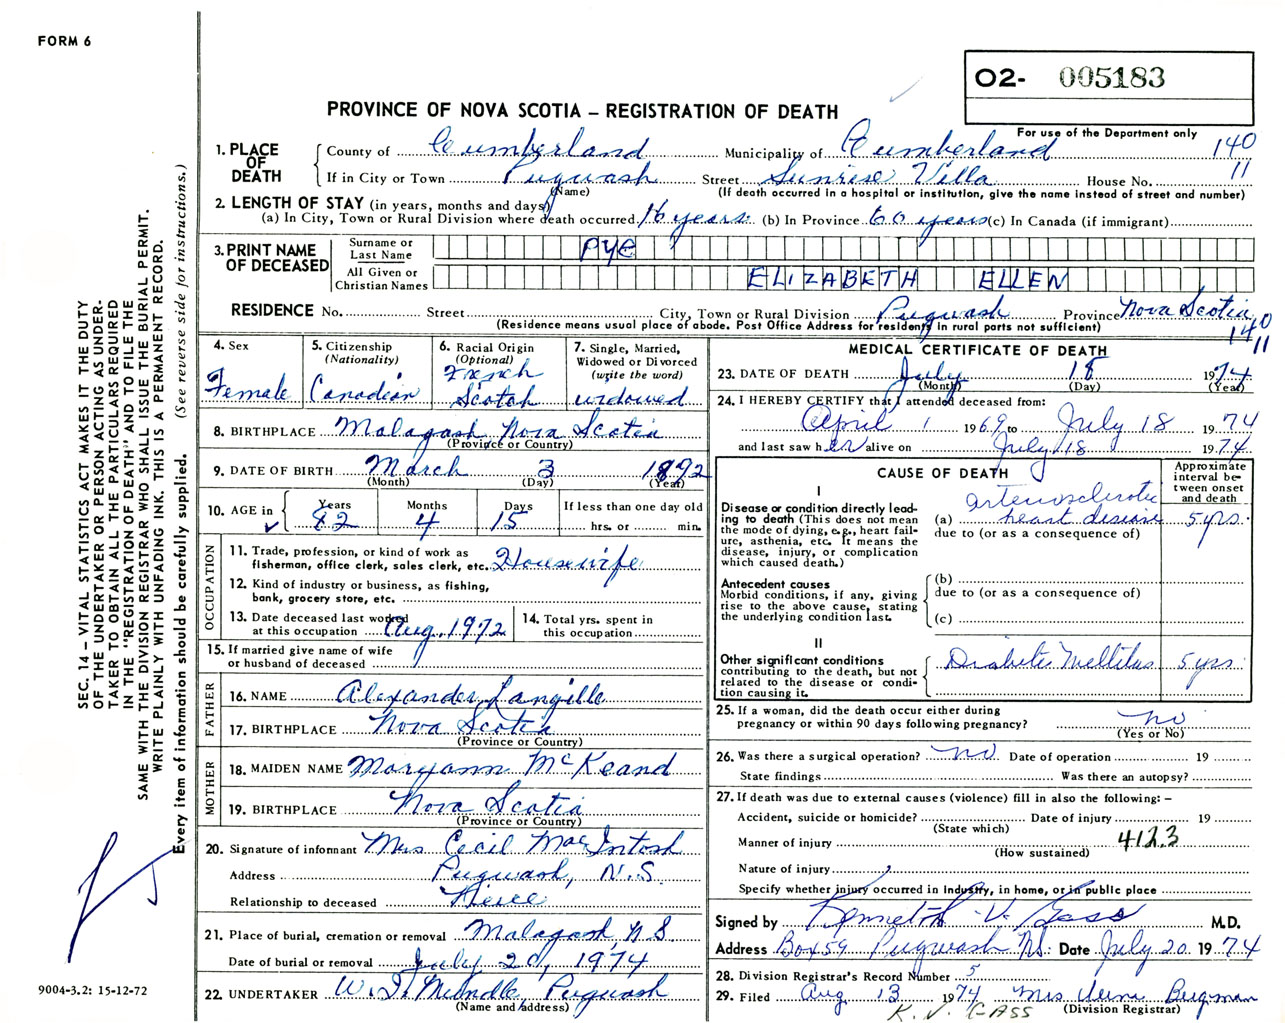 FORM 6
02- 005183
For use of the Department only
PROVINCE OF NOVA SCOTIA – REGISTRATION OF DEATH
1. PLACE OF DEATH
County of Cumberland Municipality of Cumberland 140
If in City or Town Pugwash Street Sunrise Villa House No. 11
(Name) (If death occurred in a hospital or institution, give the name instead of street and number)
2. LENGTH OF STAY (in years, months and days)
(a) In City, Town or Rural Division where death occurred 16 years (b) In Province 60 years (c) In Canada (if immigrant)
3. PRINT NAME OF DECEASED
Surname or Last Name PYE
All Given or Christian Names ELIZABETH ELLEN
RESIDENCE No. Street City, Town or Rural Division Pugwash Province Nova Scotia
(Residence means usual place of abode. Post Office Address for residents in rural parts not sufficient)
140
11
4. Sex
Female
5. Citizenship (Nationality)
Canadian
6. Racial Origin (Optional)
French
Scotch
7. Single, Married, Widowed or Divorced (write the word)
widowed
8. BIRTHPLACE Malagash Nova Scotia
(Province or Country)
9. DATE OF BIRTH March 3 1892
(Month) (Day) (Year)
10. AGE in Years 82 Months 4 Days 15 If less than one day old hrs. or min.
OCCUPATION
11. Trade, profession, or kind of work as fisherman, office clerk, sales clerk, etc. Housewife
12. Kind of industry or business, as fishing, bank, grocery store, etc.
13. Date deceased last worked at this occupation Aug. 1972
14. Total yrs. spent in this occupation
15. If married give name of wife or husband of deceased
FATHER
16. NAME Alexander Langille
17. BIRTHPLACE Nova Scotia
(Province or Country)
MOTHER
18. MAIDEN NAME Maryann McKeand
19. BIRTHPLACE Nova Scotia
(Province or Country)
20. Signature of informant Mrs Cecil MacIntosh
Address Pugwash, N.S.
Relationship to deceased Niece
21. Place of burial, cremation or removal Malagash, N S.
Date of burial or removal July 20, 1974
22. UNDERTAKER Pugwash
(Name and address)
MEDICAL CERTIFICATE OF DEATH
23. DATE OF DEATH July 18 1974
(Month) (Day) (Year)
24. I HEREBY CERTIFY that I attended deceased from:
April 1 1969 to July 18 1974
and last saw her alive on July 18 1974
CAUSE OF DEATH
Approximate interval between onset and death
I
Disease or condition directly leading to death (This does not mean the mode of dying, e.g., heart failure, asthenia, etc. It means the disease, injury, or complication which caused death.)
(a) arteriosclerotic
heart disease 5 yrs.
due to (or as a consequence of)
Antecedent causes
Morbid conditions, if any, giving rise to the above cause, stating the underlying condition last.
(b)
due to (or as a consequence of)
(c)
II
Other significant conditions contributing to the death, but not related to the disease or condition causing it.
Diabetes Mellitus 5 yrs.
25. If a woman, did the death occur either during pregnancy or within 90 days following pregnancy? no
(Yes or No)
26. Was there a surgical operation? no Date of operation 19
State findings Was there an autopsy?
27. If death was due to external causes (violence) fill in also the following: –
Accident, suicide or homicide? Date of injury 19
(State which)
Manner of injury 412.3
(How sustained)
Nature of injury
Specify whether injury occurred in industry, in home, or in public place
Signed by Kenneth V. Gass M.D.
Address Box 59 Pugwash NS. Date July 20 1974
28. Division Registrar's Record Number 5
29. Filed Aug 13 1974 Mrs
K. V. GASS (Division Registrar)
SEC. 14 – VITAL STATISTICS ACT MAKES IT THE DUTY
OF THE UNDERTAKER OR PERSON ACTING AS UNDER-
TAKER TO OBTAIN ALL THE PARTICULARS REQUIRED
IN THE "REGISTRATION OF DEATH" AND TO FILE THE
SAME WITH THE DIVISION REGISTRAR WHO SHALL ISSUE THE BURIAL PERMIT.
WRITE PLAINLY WITH UNFADING INK. THIS IS A PERMANENT RECORD.
Every item of information should be carefully supplied. (See reverse side for instructions.)
9004-3.2: 15-12-72